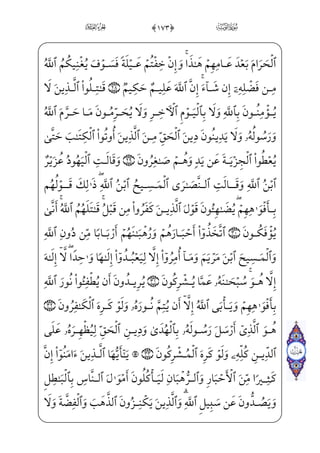 سُورَةُ التَّوْبَةِ ﴿١٧٣﴾ الجُزءُ العَاشِرُ
ٱلْحَرَامَ بَعْدَ عَامِهِمْ هَـٰذَا ۚ وَإِنْ خِفْتُمْ عَيْلَةً فَسَوْفَ يُغْنِيكُمُ ٱللَّهُ
مِن فَضْلِهِۦٓ إِن شَآءَ ۚ إِنَّ ٱللَّهَ عَلِيمٌ حَكِيمٌ ٢٨ قَـٰتِلُوا۟ ٱلَّذِينَ لَا
يُؤْمِنُونَ بِٱللَّهِ وَلَا بِٱلْيَوْمِ ٱلْـَٔاخِرِ وَلَا يُحَرِّمُونَ مَا حَرَّمَ ٱللَّهُ
وَرَسُولُهُۥ وَلَا يَدِينُونَ دِينَ ٱلْحَقِّ مِنَ ٱلَّذِينَ أُوتُوا۟ ٱلْكِتَـٰبَ حَتَّىٰ
يُعْطُوا۟ ٱلْجِزْيَةَ عَن يَدٍ وَهُمْ صَـٰغِرُونَ ٢٩ وَقَالَتِ ٱلْيَهُودُ عُزَيْرٌ
ٱبْنُ ٱللَّهِ وَقَالَتِ ٱلنَّصَـٰرَى ٱلْمَسِيحُ ٱبْنُ ٱللَّهِ ۖ ذَٰلِكَ قَوْلُهُم
بِأَفْوَٰهِهِمْ ۖ يُضَـٰهِـُٔونَ قَوْلَ ٱلَّذِينَ كَفَرُوا۟ مِن قَبْلُ ۚ قَـٰتَلَهُمُ ٱللَّهُ ۚ أَنَّىٰ
يُؤْفَكُونَ ٣٠ ٱتَّخَذُوٓا۟ أَحْبَارَهُمْ وَرُهْبَـٰنَهُمْ أَرْبَابًا مِّن دُونِ ٱللَّهِ
وَٱلْمَسِيحَ ٱبْنَ مَرْيَمَ وَمَآ أُمِرُوٓا۟ إِلَّا لِيَعْبُدُوٓا۟ إِلَـٰهًا وَٰحِدًا ۖ لَّآ إِلَـٰهَ
إِلَّا هُوَ ۚ سُبْحَـٰنَهُۥ عَمَّا يُشْرِكُونَ ٣١ يُرِيدُونَ أَن يُطْفِـُٔوا۟ نُورَ ٱللَّهِ
بِأَفْوَٰهِهِمْ وَيَأْبَى ٱللَّهُ إِلَّآ أَن يُتِمَّ نُورَهُۥ وَلَوْ كَرِهَ ٱلْكَـٰفِرُونَ ٣٢
هُوَ ٱلَّذِىٓ أَرْسَلَ رَسُولَهُۥ بِٱلْهُدَىٰ وَدِينِ ٱلْحَقِّ لِيُظْهِرَهُۥ عَلَى
ٱلدِّينِ كُلِّهِۦ وَلَوْ كَرِهَ ٱلْمُشْرِكُونَ ٣٣ ۞ يَـٰٓأَيُّهَا ٱلَّذِينَ ءَامَنُوٓا۟ إِنَّ
كَثِيرًا مِّنَ ٱلْأَحْبَارِ وَٱلرُّهْبَانِ لَيَأْكُلُونَ أَمْوَٰلَ ٱلنَّاسِ بِٱلْبَـٰطِلِ
وَيَصُدُّونَ عَن سَبِيلِ ٱللَّهِ ۗ وَٱلَّذِينَ يَكْنِزُونَ ٱلذَّهَبَ وَٱلْفِضَّةَ وَلَا